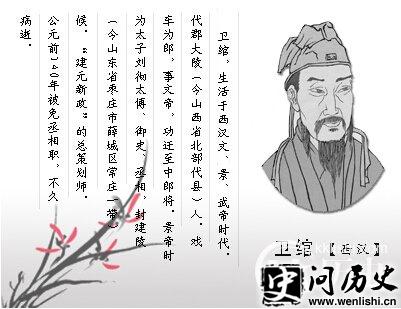 卫绾，生活于西汉文、景、武帝时代．
代郡大陵（今山西省北部代县）人．戏
车为郎，事文帝，功迁至中郎将．景帝时
为太子刘彻太傅、御史、丞相，封建陵
（今山东省枣庄市薛城区常庄一带）
候．“建元新政”的总策划师．
公元前140年被免丞相职，不久
病逝．
卫绾 【西汉】
问历史
www.wenlishi.cn